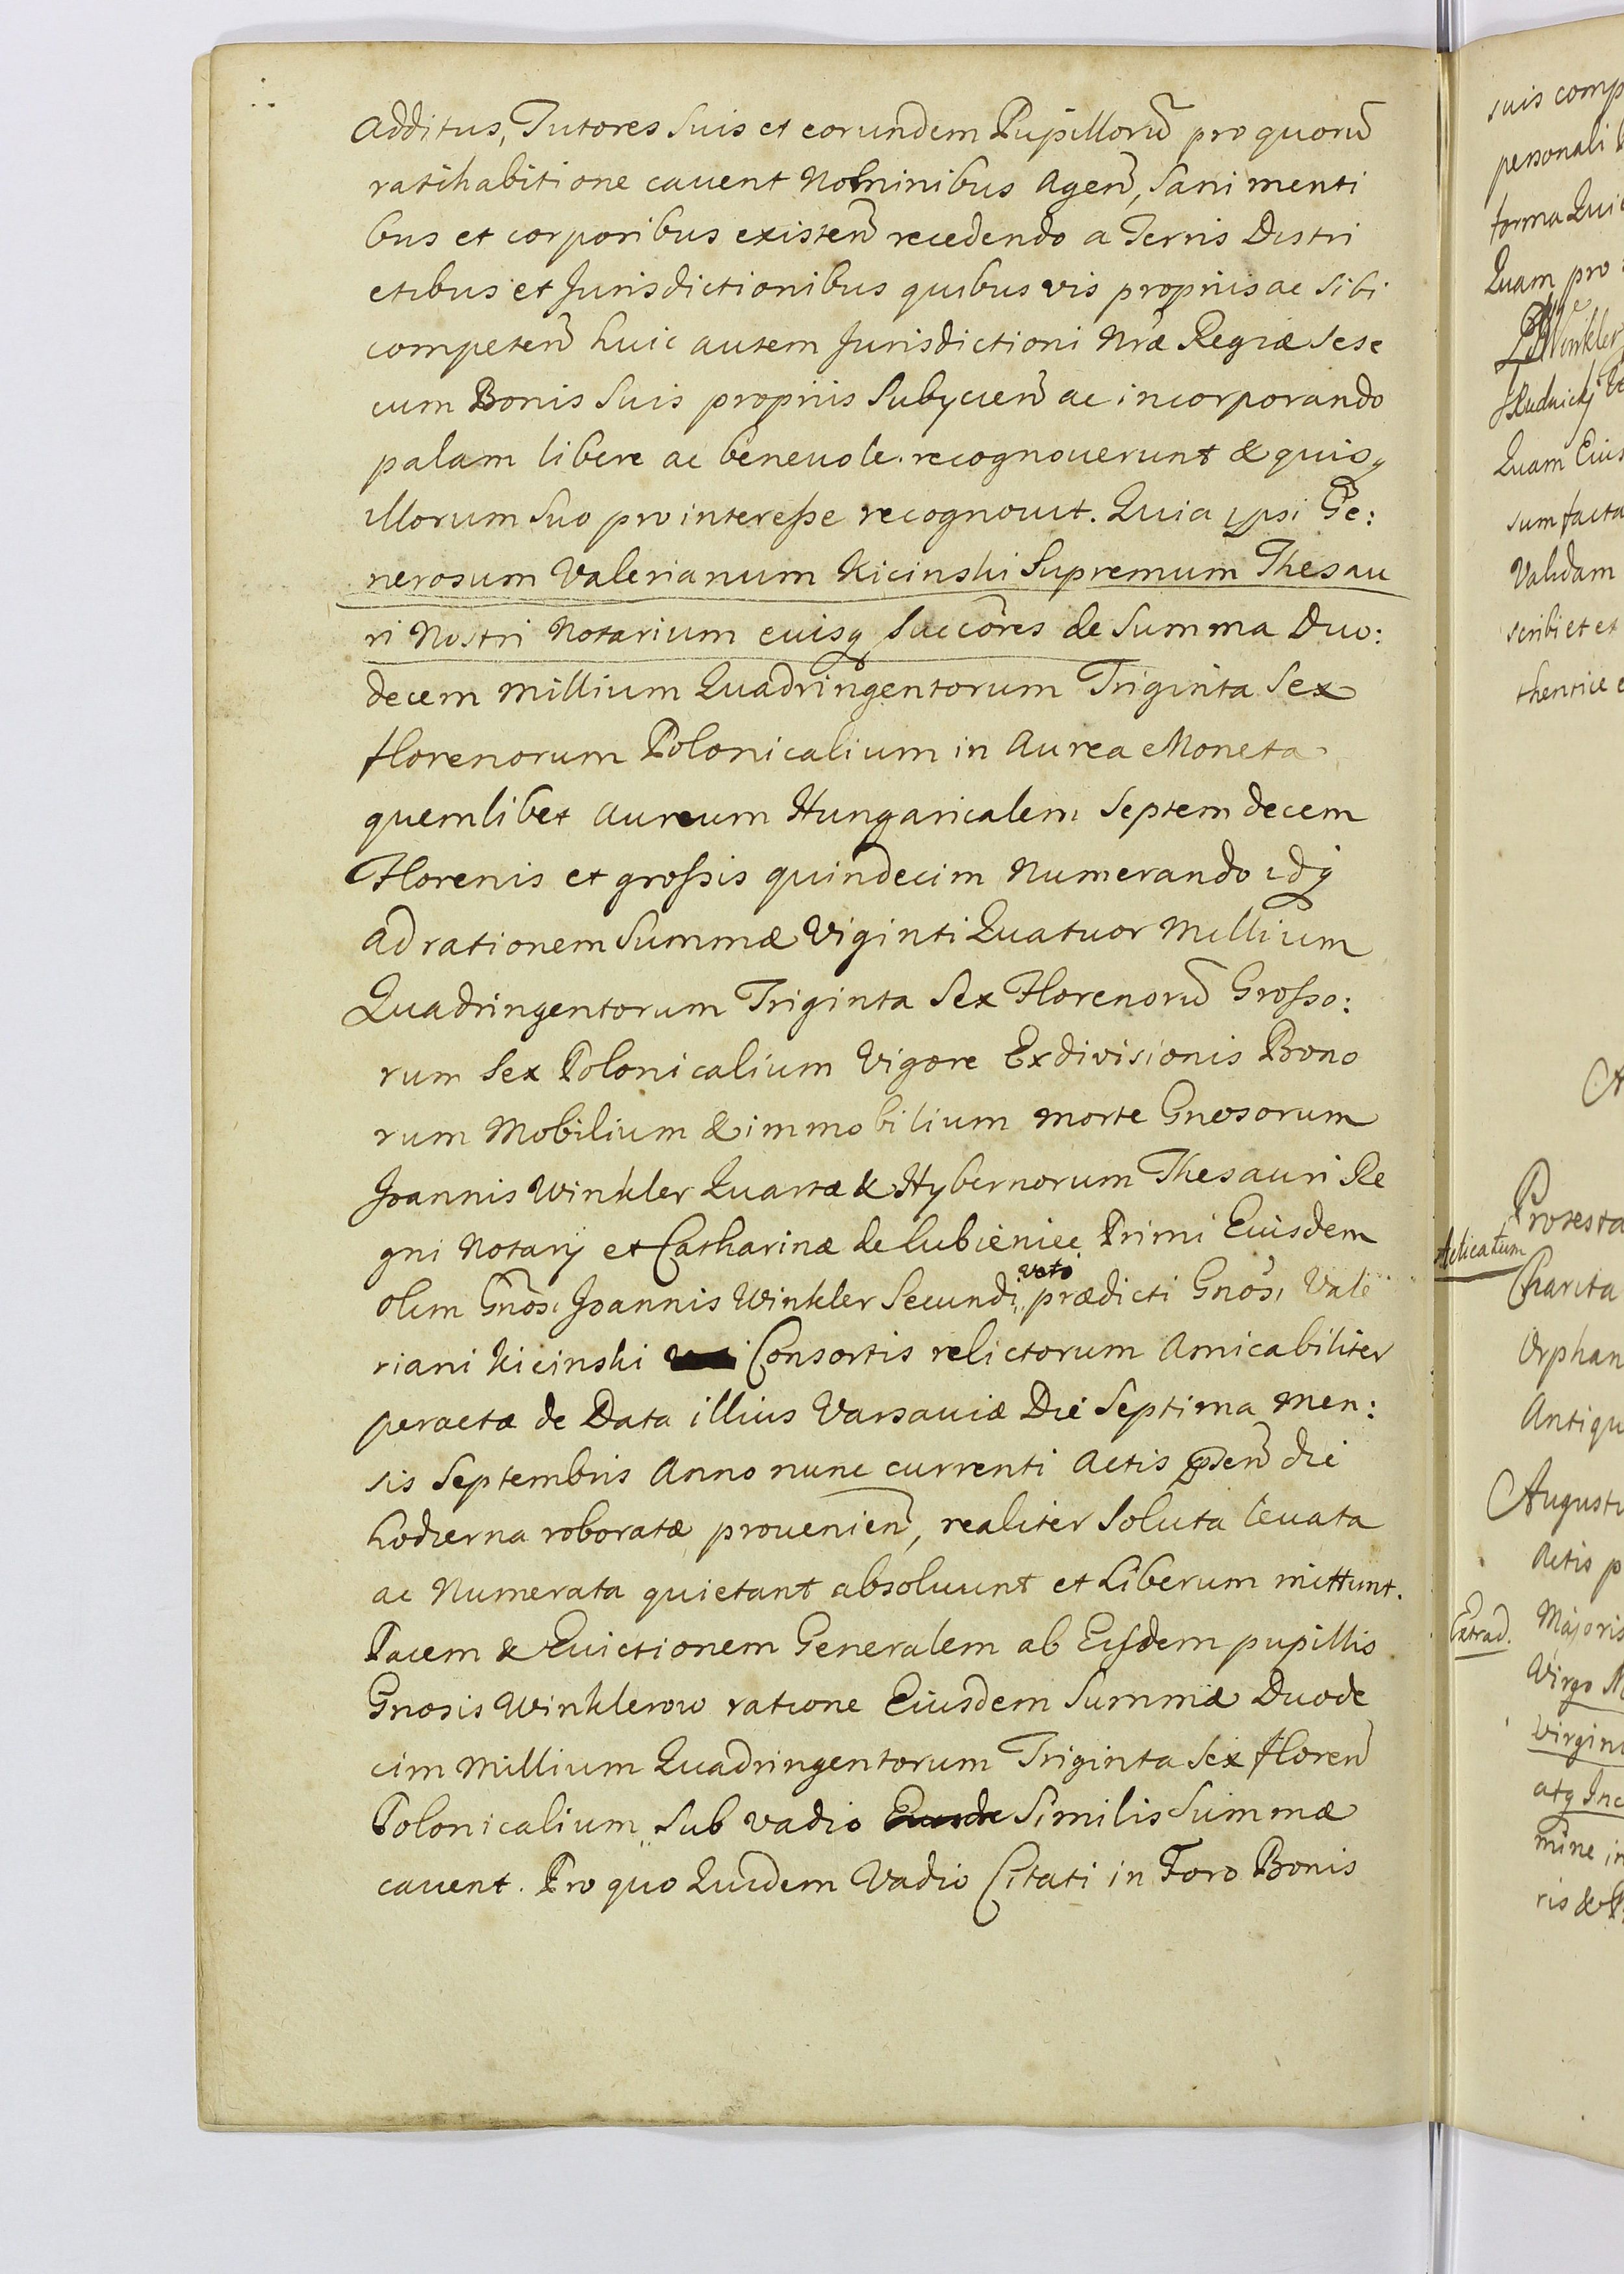 Additus, Tutores Suis et eorundem Pupillorū pro quorū
ratihabitione cavent Nominibus Agen̄, Sani menti
bus et corporibus existen̄ recedendo a Terris Distri
ctibus et Jurisdictionibus quibus vis proprijs ac Sibi
competen̄ huic autem Jurisdictioni Nr̄æ Regiæ Sese
cum Bonis Suis proprijs Subycien̄ ac incorporando
palam libere ac beneuole recognouerunt & quisq̨
illorum Suo pro interesse recognouit. Quia ipsi Ge:
nerosum Valerianum Kicinski Supremum Thesau
ri Nostri Notarium euisq̨ Succōres de Summa Duo:
decem millium Quadringentorum Triginta Sex
florenorum Polonicalium in Aurea Moneta
quemlibet Aureum Hungaricalem Septem decem
Florenis et grossis quindecim Numerando idq̨
ad rationem Summæ Viginti Quatuor Millium
Quadringentorum Triginta Sex Florenorū Grosso:
rum Sex Polonicalium Vigore Exdivisionis Bono
rum Mobilium & immobilium morte Gnosorum
Joannis Winkler Quartæ & Hybernorum Thesauri Re
gni Notarij et Catharinæ de Lubieniec Primi Euisdem
olim Gnōsi Joannis Winkler Secundi veto prædicti Gnōsi Vale
riani Kicinski Consortis relictorum Amicabiliter
peractæ de Data illius Varsauiæ Die Septima Men:
sis Septembris Anno nunc currenti Actis pn̄sen̄ die
hodierna roboratæ prouenien̄, realiter Soluta leuata
ac Numerata quietant absoluunt et Liberum mittunt.
Pacem & Euictionem Generalem ab Eisdem pupillis
Gnosis Winklerow ratione Eiusdem Summæ Duode
cim Millium Quadringentorum Triginta Sex floren̄
Polonicalium Sub vadio Eiusde Similis Summæ
cauent. Pro quo Quidem Vadio Citati in Foro Bonis
suis comp
personali
forma Qui
Quam pro
Winkler
Rudnickj
Quam Eius
sum facta
Validam
scribi et et
thentice e
Protesta
Aelicatum
Charita
Orphan
Antiqu
Augusti
Actis p
Extrad. Majoris
Virgo
Virgini
atq̨ Inc
mine in
ris &